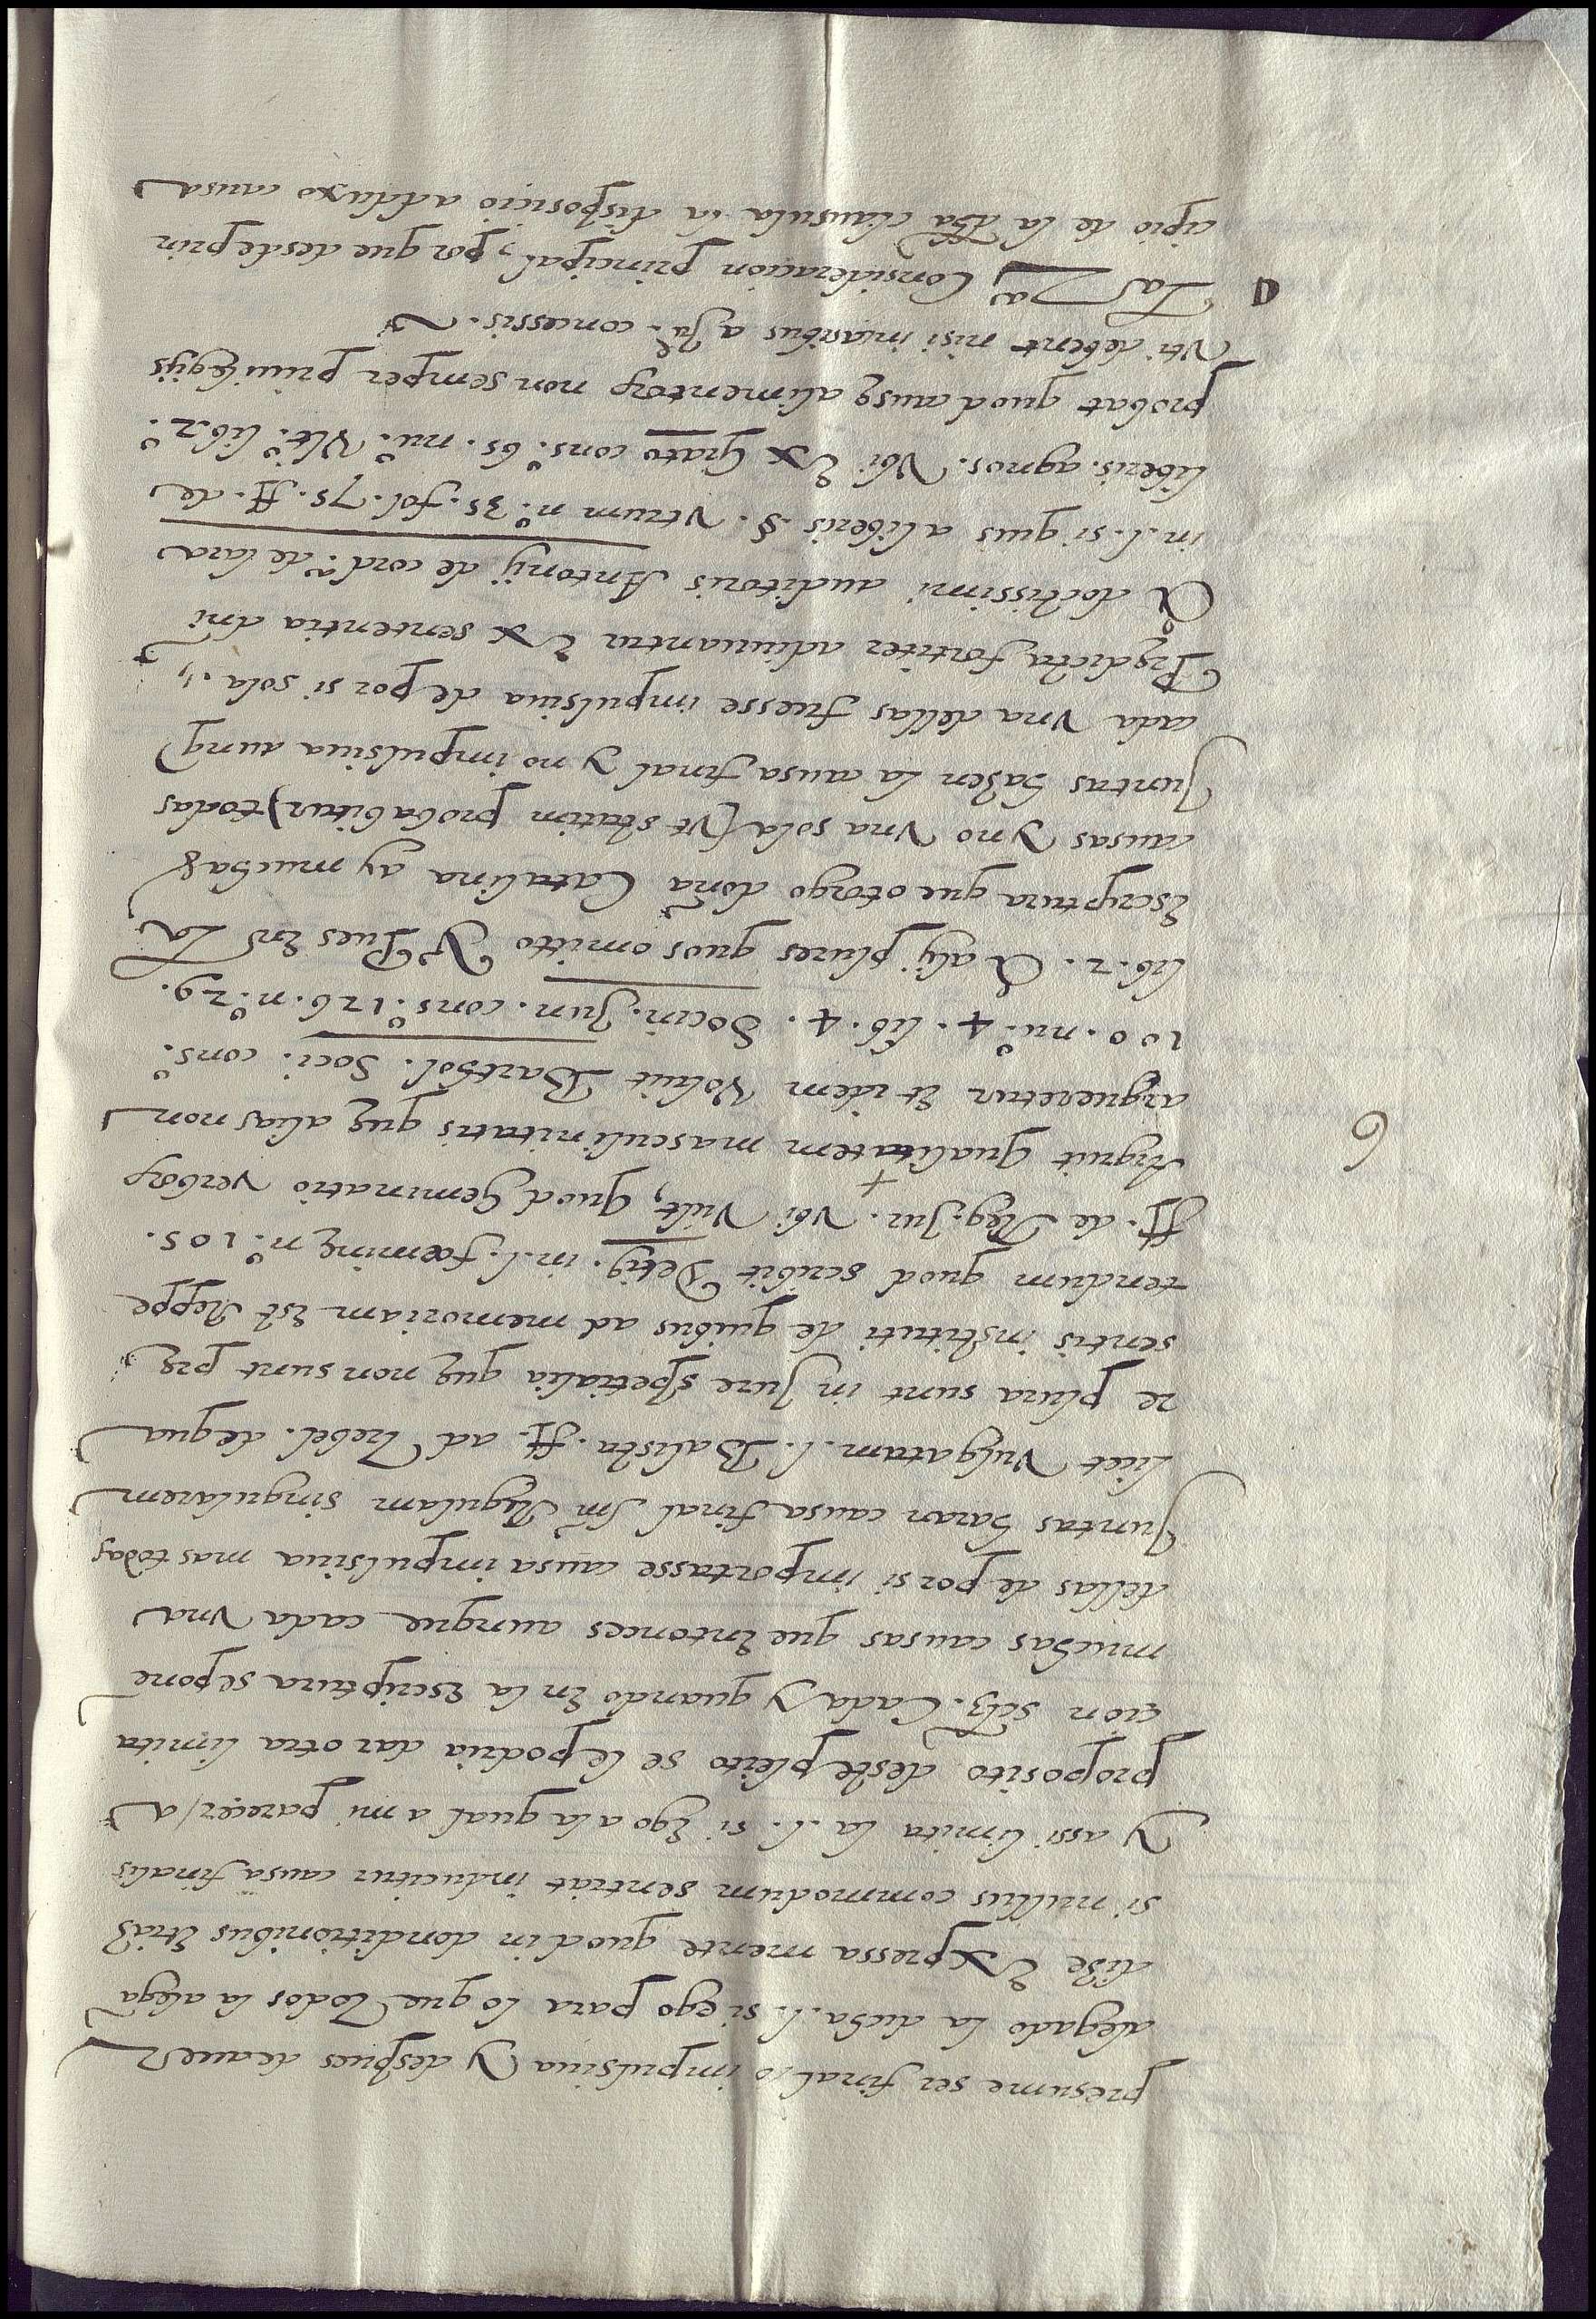 presume ser final, o impulsiua y despues de auer
alegado la dicha .l. si ego para lo que todos la alegā
dize expressa mente quod in conditionibus etiā
si nullus commodum sentiat inducitur causa finalis
y assi limita la .l. si ego a la qual a mi pareçer / a
proposito deste pleito se le podria dar otra limita
çion scz. Cada y quando en la escriptura se pone
muchas causas que entonces aunque cada vna
dellas de por si importasse causa impulsiua mas todas
Juntas haran causa final sm̄ Regulam singularem
licet vulgatam .l. Balista. ff. ad trebel. de qua
re plura sunt in Jure spetialia quę non sunt prę
sentis instituti de quibus ad memoriam est Reppe
tendum quod scribit Detiꝰ. in .l. foeminę nº. 105.
ff. de Reg. Jur. vbi vult, quod geminatio verborꝝ
Arguit qualitatem masculinitatis quę alias non
6
argueretur et idem voluit Barthol. Soci. consº.
100. nuº. 4. lib. 4. Socin. Jun. consº. 126. nº. 29.
lib. 2. & alij plures quos omitto y Pues en La
Escryptura que otorgo doña Catalina ay muchas
causas y no vna sola (vt statim probabitur) todas
Juntas hazen la causa final y no impulsiua aunq̄
cada vna dellas fuesse impulsiua de por si sola.,,
Prędicta fortiter adiuuantur Ex sententia dn̄i
& doctissimi auditoris Antonij de cordª. de lara
in .l. si quis a liberis §. vtrum nº. 35. fol. 75. ff. de
liberis. agnos. vbi Ex Grato consº. 65. nuº. vltº. lib. 2º.
probat quod causę alimentorꝝ non semper priuilegijs
vti debent nisi in casibus a Ju. concessis.
Las 2ª Consideracion principal, por que desde prin
cipio de la dha clausula la disposiciō adduxo causa